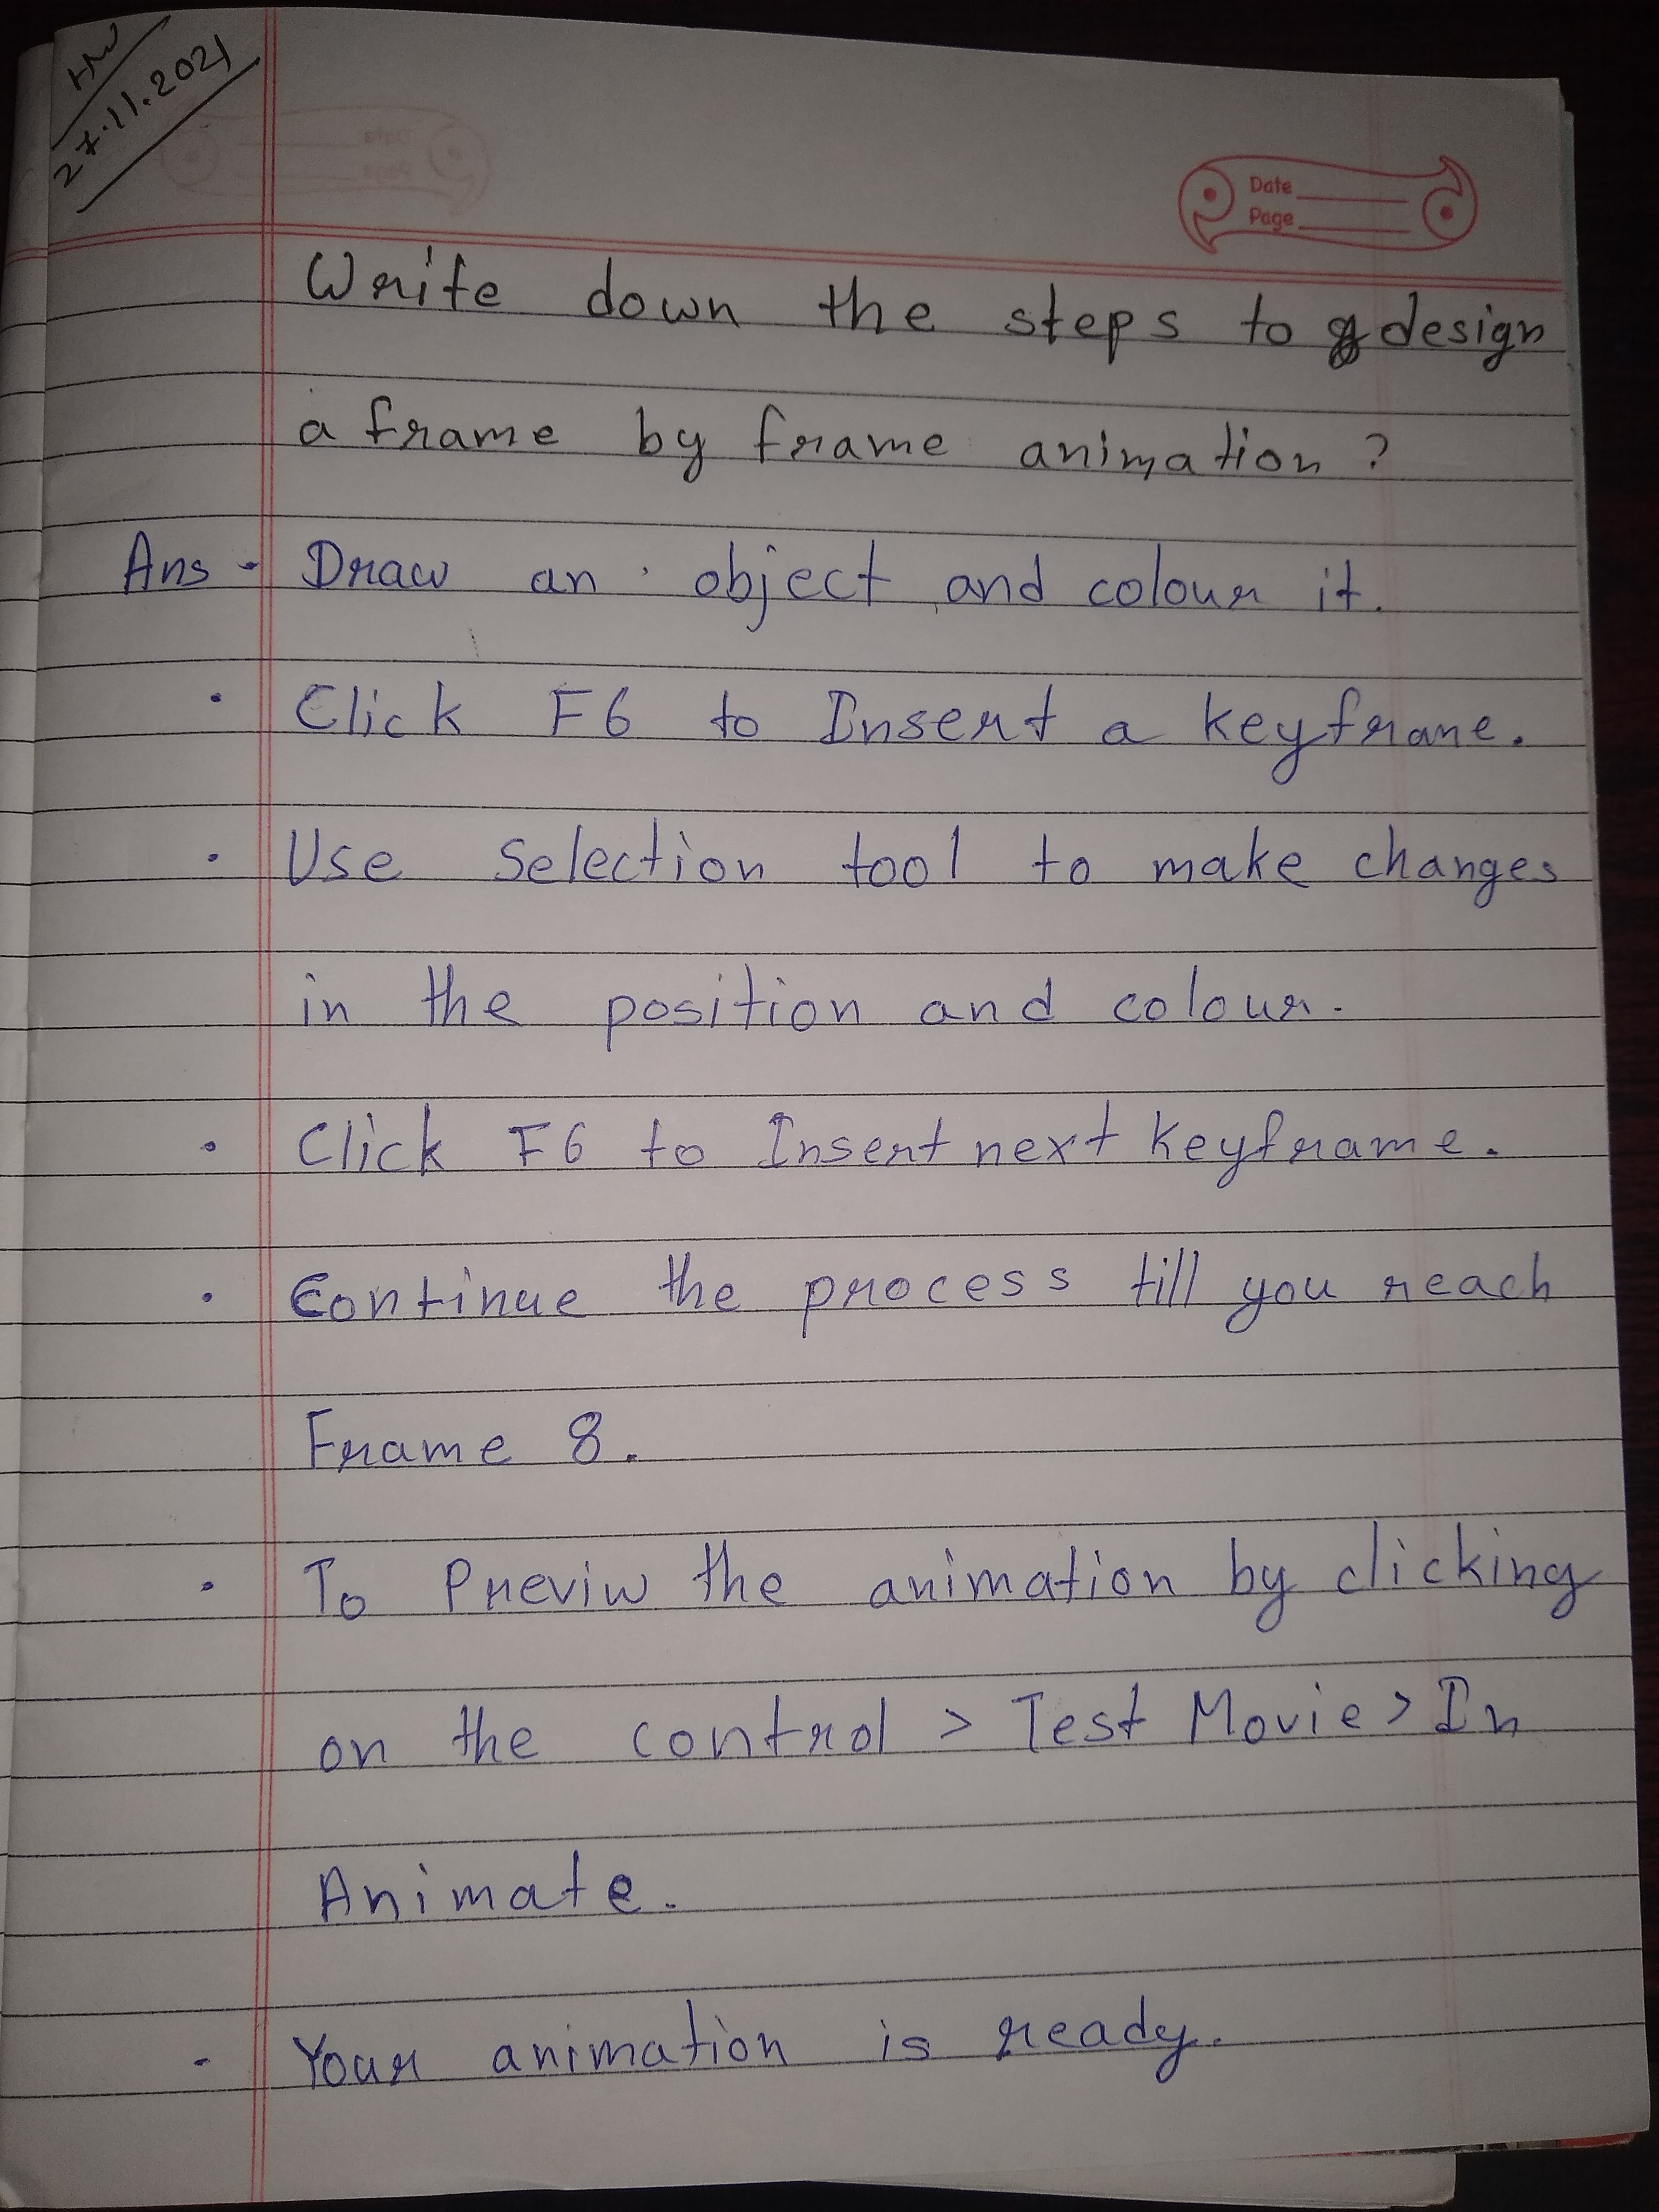 HW
27.11.2021
Date
Page
Write down the steps to design
a frame by frame animation ?
Ans - Draw an object and colour it.
• Click F6 to Insert a keyframe.
• Use Selection tool to make changes
in the position and colour.
• Click F6 to Insert next keyframe.
• Continue the process till you reach
Frame 8.
• To Previw the animation by clicking
on the control > Test Movie > In
Animate.
• Your animation is ready.